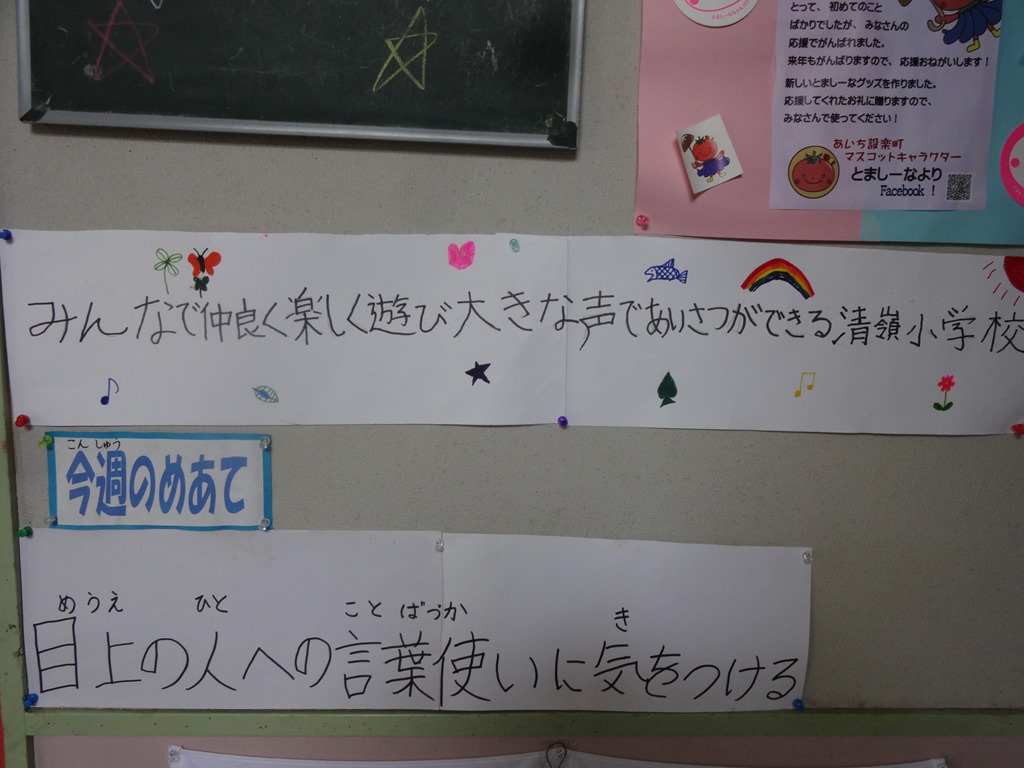 とって、初めてのこと
ばかりでしたが、みなさんの
応援でがんばれました。
来年もがんばりますので、応援おねがいします！
新しいとましーなグッズを作りました。
応援してくれたお礼に贈りますので、
みなさんで使ってください！
あいち設楽町
マスコットキャラクター
とましーなより
Facebook！
みんなで仲良く楽しく遊び大きな声であいさつができる清嶺小学校
こんしゅう
今週のめあて
めうえ ひと ことばづか き
目上の人への言葉使いに気をつける